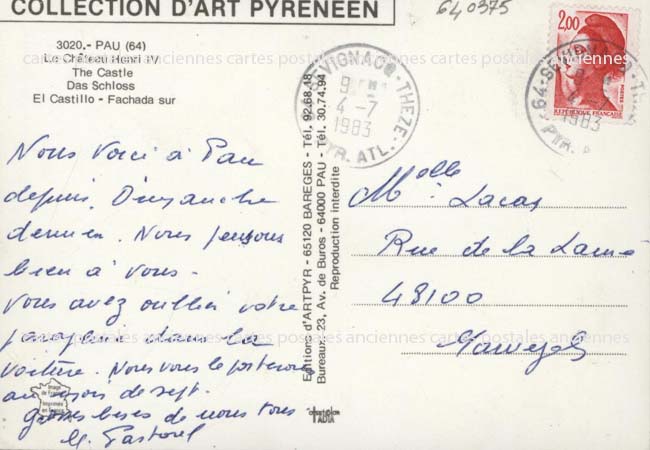 COLLECTION D'ART PYRÉNÉEN
640375
3020.- PAU (64)
Le Château Henri IV
The Castle
Das Schloss
El Castillo - Fachada sur
cartes postales anciennes cartes postales anciennes cartes postales
Nous voici à Pau
depuis Dimanche
dernier. Nous pensons
bien à vous.
Vous avez oublié votre
dans la
voiture. Nous vous le porterons
au mois de sept.
grosses bises de nous tous
Pastorel
Image de France
Imprimée en France
Editions d'ARTPYR - 65120 BAREGES - Tél. 92.68.18
Bureaux: 23, Av. de Buros - 64000 PAU - Tél. 30.74.94
Reproduction interdite
THEZE
4-7
1983
PYR. ATL.
2,00
POSTES
REPUBLIQUE FRANÇAISE
64
1983
Melle Lacas
Rue de la
48100
cartes postales anciennes cartes postales anciennes cartes postales